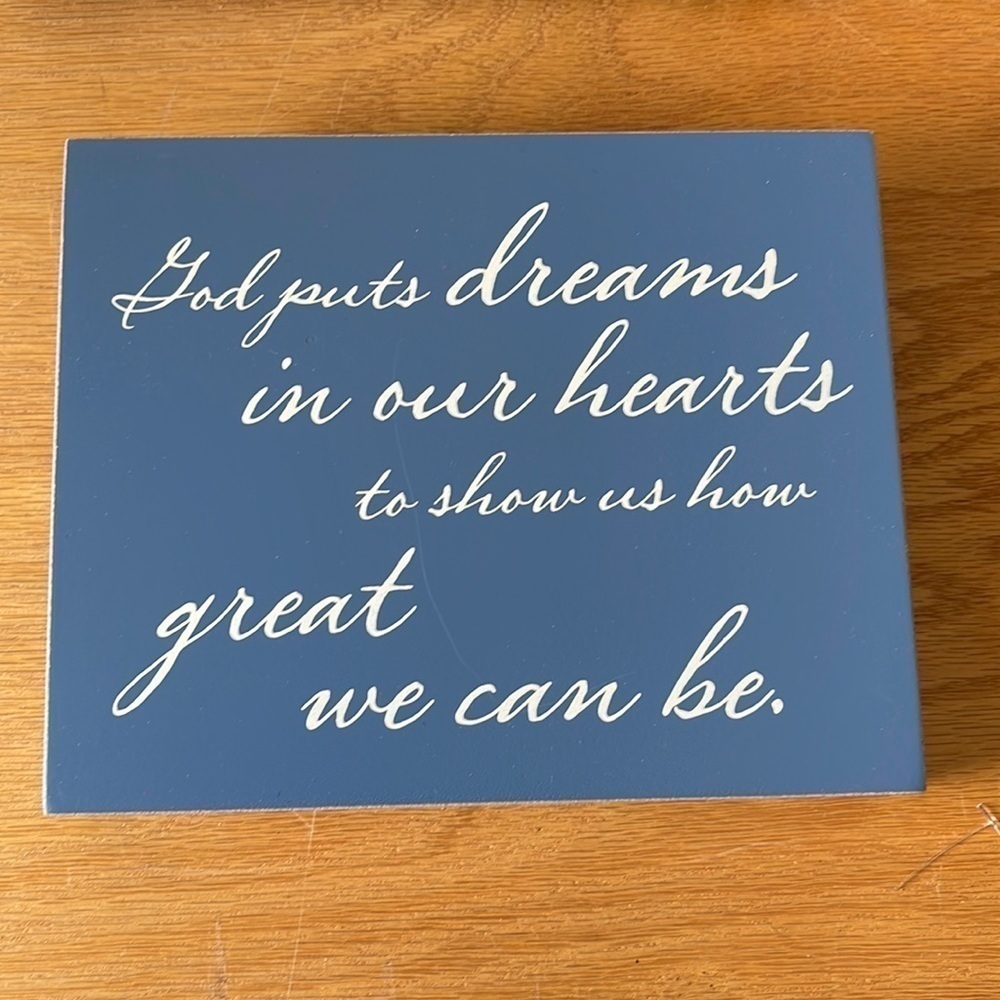 God puts dreams
in our hearts
to show us how
great
we can be.